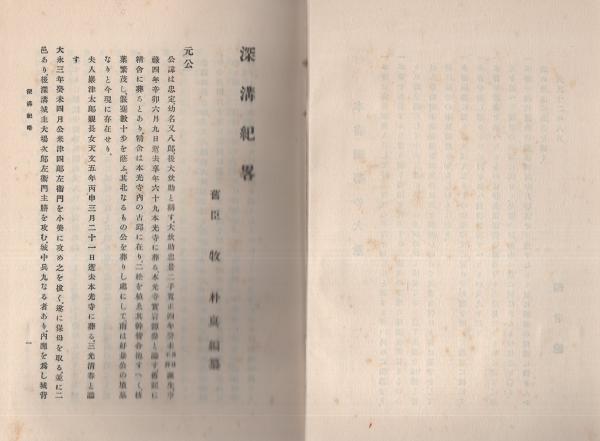 深溝紀畧
舊臣 牧朴眞編纂
元公
公諱は忠定幼名又八郎後大炊助と稱す、大炊助忠景二子寛正四年癸未誕生享
祿四年辛卯六月九日逝去享年六十九本光寺に葬る、本光寺實岩源忠と諡す舊記に
精舍に葬るとあり、精舍は本光寺內の古邸に在り、二松を植ゑ其幹合抱すへく、枝
葉繁茂し、偃蹇數十步を蔭ふ、其北なるもの公を葬りし處にして、南は好景公の墳墓
なりと今現に存在せり、
夫人巖津太郎親長女天文五年丙申三月二十一日逝去本光寺に葬る、三光清春と諡
す
大永三年癸未四月公米津四郎左衞門を小美に攻め之を拔く、遂に保母を取る、並に二
邑あり、後深溝城主大場次郎左衞門主勝を攻む、城中兵九なる者あり、內應を爲し城背
深溝紀略
一